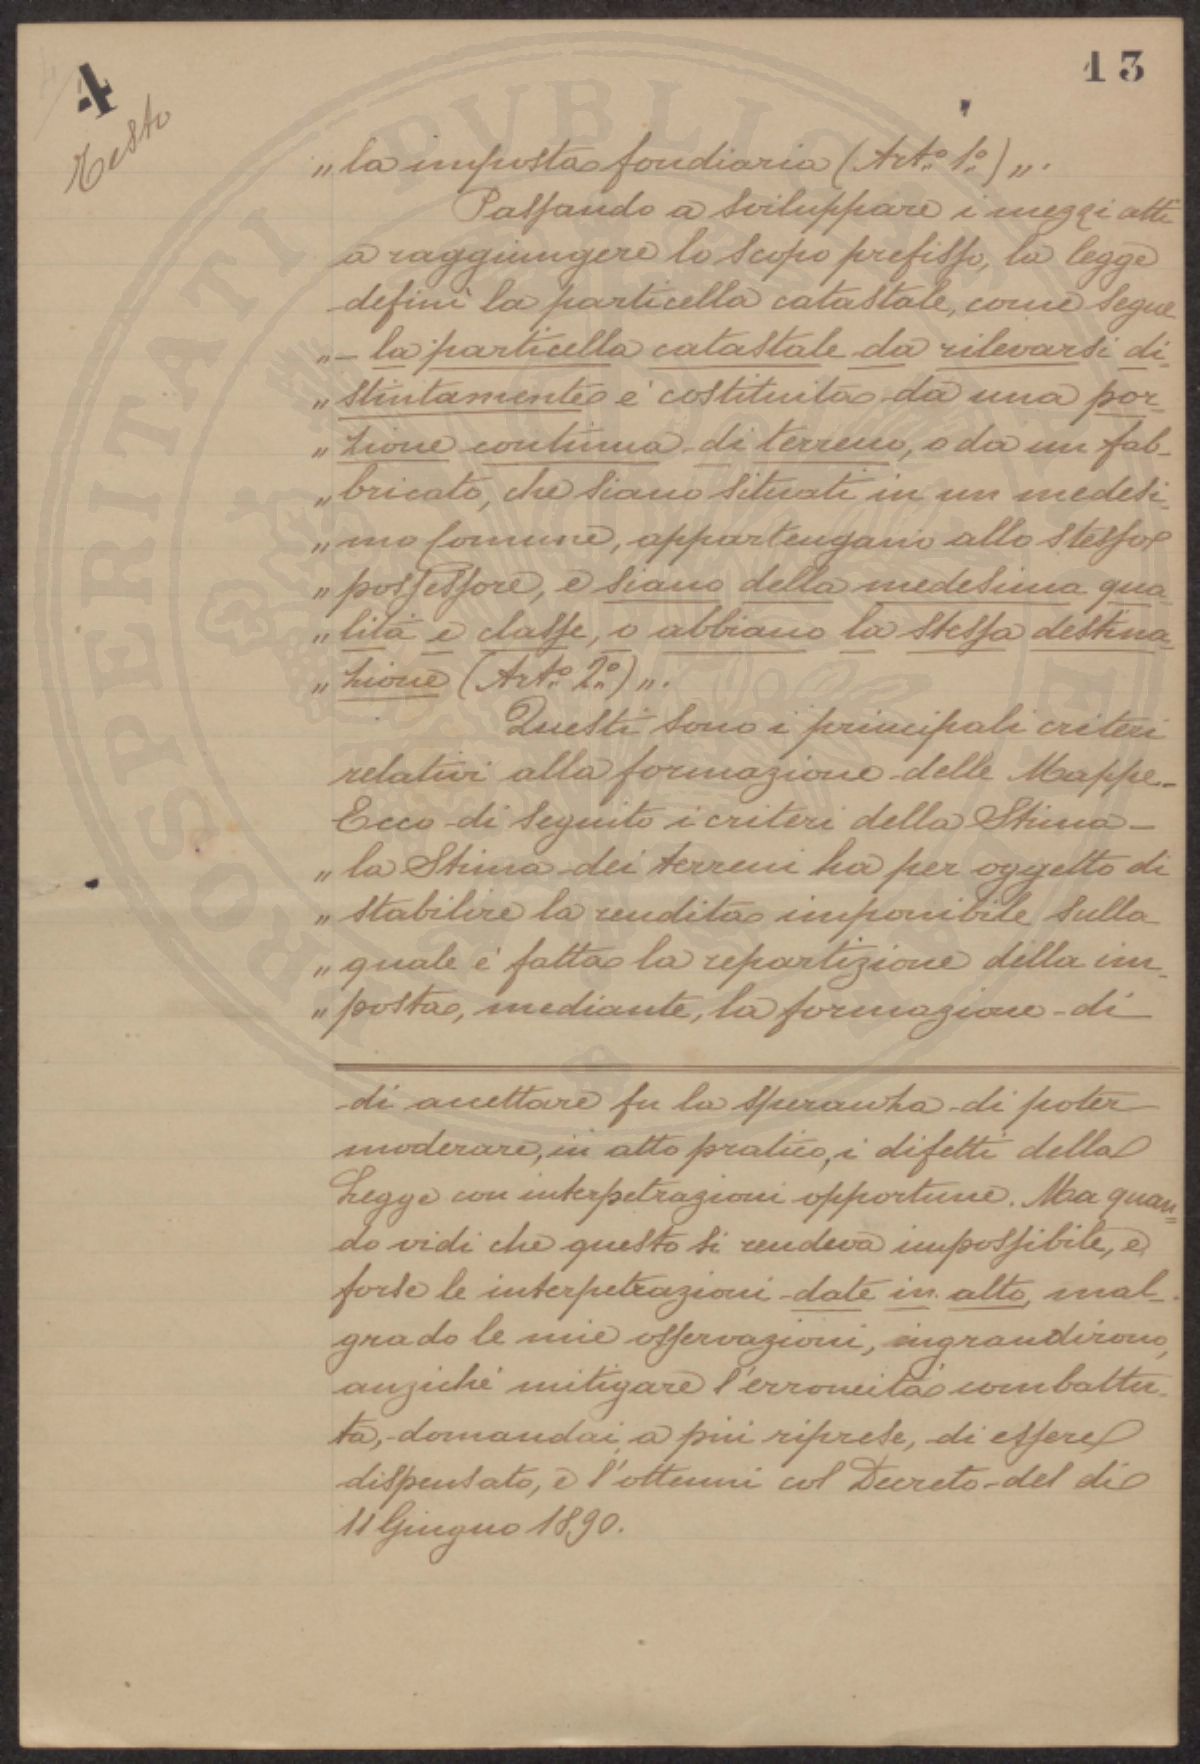 4
13
Testo
„ la imposta fondiaria (Art.º 1º) „.
Passando a sviluppare i mezzi atti
a raggiungere lo scopo prefisso, la legge
definì la particella catastale, come segue
„ – la particella catastale da rilevarsi di-
„ stintamente è costituita da una por-
„ zione continua di terreno, o da un fab-
„ bricato, che siano situati in un medesi-
„ mo Comune, appartengano allo stesso
„ possessore, e siano della medesima qua-
„ lità e classe, o abbiano la stessa destina-
„ zione (Art.º 2º) „.
Questi sono i principali criteri
relativi alla formazione delle Mappe.–
Ecco di seguito i criteri della Stima –
„ la Stima dei terreni ha per oggetto di
„ stabilire la rendita imponibile sulla
„ quale è fatta la repartizione della im-
„ posta, mediante, la formazione di
di accettare fu la speranza di poter
moderare, in atto pratico, i difetti della
Legge con interpetrazioni opportune. Ma quan=
do vidi che questo si rendeva impossibile, e
forse le interpetrazioni date in alto, mal-
grado le mie osservazioni, ingrandirono,
anziché mitigare l'erroneità combattu-
ta, domandai, a più riprese, di essere
dispensato, e l'ottenni col Decreto del dì
11 Giugno 1890.
PROSPERITATI PUBLICAE